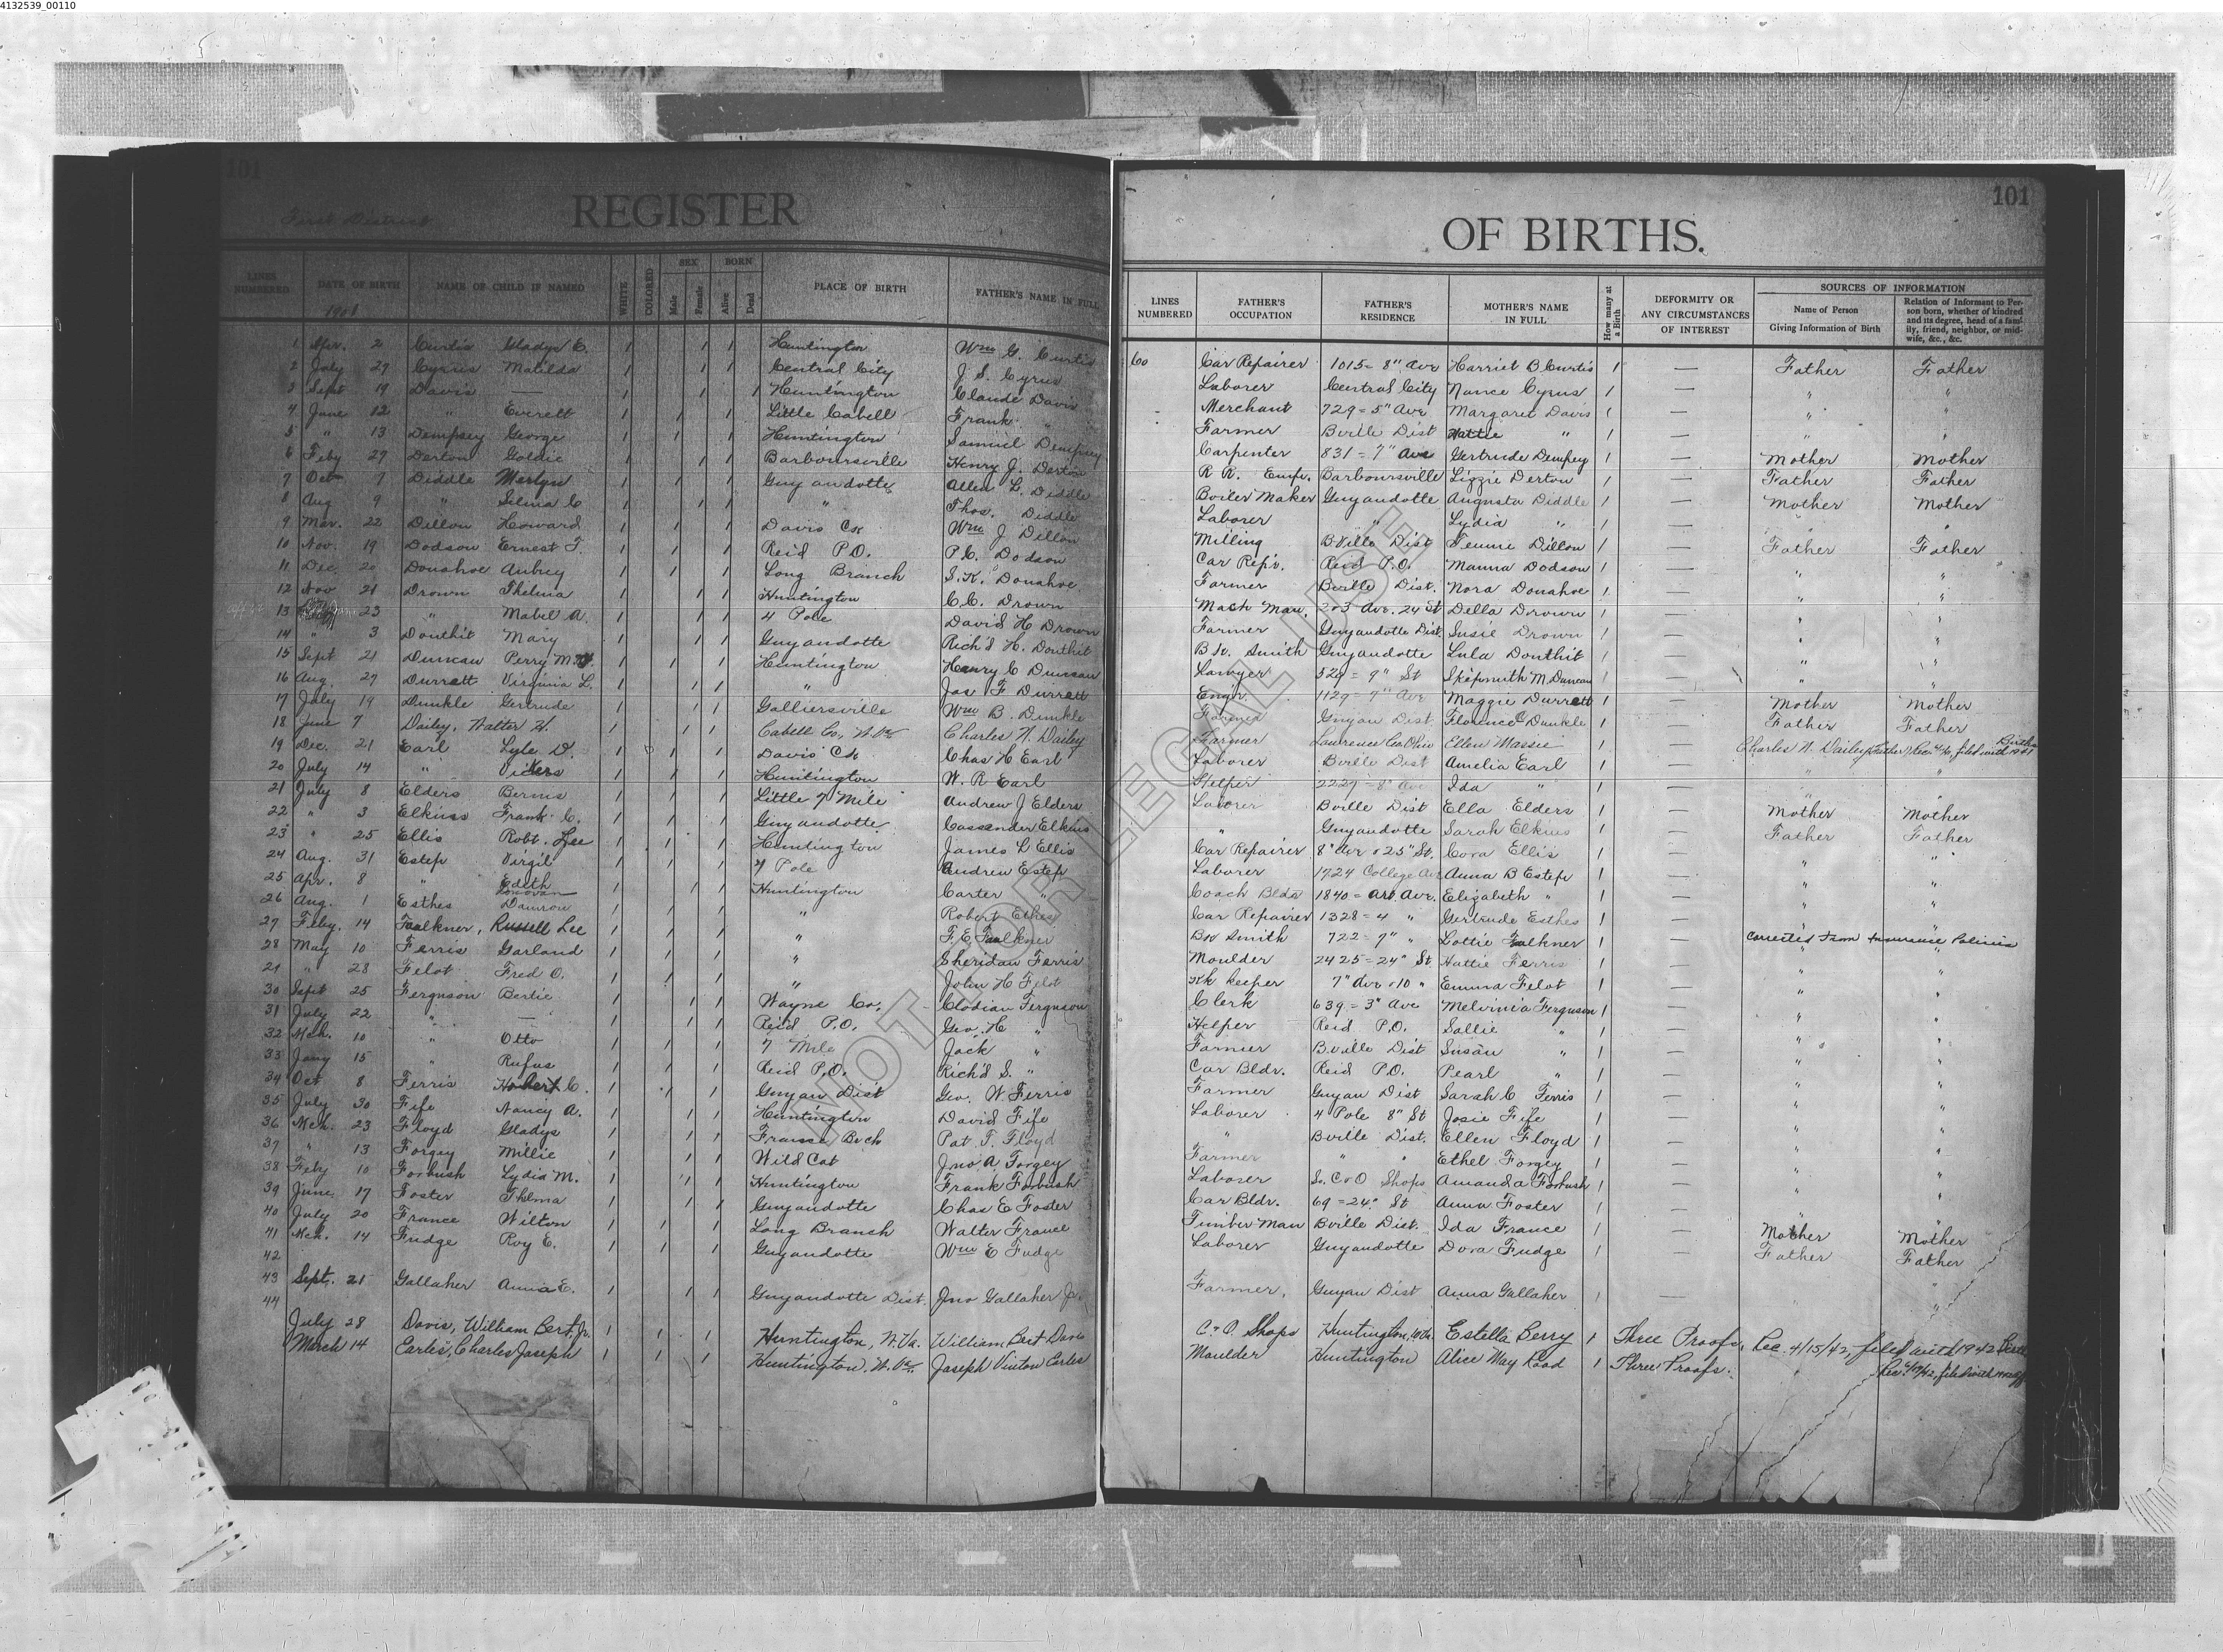 4132539_00110
101
First District
REGISTER
LINES NUMBERED DATE OF BIRTH NAME OF CHILD IF NAMED WHITE COLORED SEX Male Female BORN Alive Dead PLACE OF BIRTH FATHER'S NAME IN FULL
1901
1 Apr. 2 Curtis Gladys E. 1 1 1 Huntington Wm G. Curtis
2 July 29 Cyrus Matilda 1 1 1 Central City J. S. Cyrus
3 Sept 19 Davis — 1 1 Huntington Claude Davis
4 June 12 " Everett 1 1 1 Little Cabell Frank "
5 " 13 Dempsey George 1 1 1 Huntington Samuel Dempsey
6 Feby 27 Derton Goldie 1 1 1 Barboursville Henry J. Derton
7 Oct 7 Diddle Merlyn 1 1 1 Guyandotte Allen L. Diddle
8 Aug 9 " Selma C 1 1 1 " Thos. Diddle
9 Mar. 22 Dillon Howard 1 1 1 Davis Ck Wm J Dillon
10 Nov. 19 Dodson Ernest T. 1 1 1 Reid P.O. P. C. Dodson
11 Dec. 20 Donahoe Aubrey 1 1 1 Long Branch S. K. Donahoe
12 Nov 21 Drown Thelma 1 1 1 Huntington C. C. Drown
13 23 " Mabel A. 1 1 1 4 Pole David H Drown
14 " 3 Douthit Mary 1 1 1 Guyandotte Rich'd H. Douthit
15 Sept 21 Duncan Perry M. 1 1 1 Huntington Henry C Duncan
16 Aug. 27 Durrett Virginia L. 1 1 1 " Jas F Durrett
17 July 19 Dunkle Gertrude 1 1 1 Galliersville Wm B. Dunkle
18 June 7 Dailey, Walter W. 1 1 1 Cabell Co., W. Va Charles W. Dailey
19 Dec. 21 Earl Lyle D. 1 1 1 Davis Ck Chas H Earl
20 July 14 " Vickers 1 1 1 Huntington W. R Earl
21 July 8 Elders Bernis 1 1 1 Little 7 Mile Andrew J Elders
22 " 3 Elkins Frank C. 1 1 1 Guyandotte Cassender Elkins
23 " 25 Ellis Robt. Lee 1 1 1 Huntington James L Ellis
24 Aug. 31 Estep Virgil 1 1 1 4 Pole Andrew Estep
25 Apr. 8 " Edith 1 1 1 Huntington Carter "
26 Aug. 1 Esthes Donovan Damron 1 1 1 " Robert Ethes
27 Feby. 14 Faulkner, Russell Lee 1 1 1 " F. E. Faulkner
28 May 10 Ferris Garland 1 1 1 " Sheridan Farris
29 " 28 Felot Fred O. 1 1 1 " John H Felot
30 Sept 25 Ferguson Bertie 1 1 1 Wayne Co. Clodian Ferguson
31 July 22 " — 1 1 1 Reid P.O. Geo. H "
32 Mch. 10 " Otto 1 1 1 7 Mile Jack "
33 Jany 15 " Rufus 1 1 1 Reid P.O. Rich'd S. "
34 Oct 8 Ferris Hobert C. 1 1 1 Guyan Dist Geo. W Ferris
35 July 30 Fife Nancy A. 1 1 1 Huntington David Fife
36 Mch. 23 Floyd Gladys 1 1 1 France Bch Pat T. Floyd
37 " 13 Forgey Millie 1 1 1 Wild Cat Jno A. Forgey
38 Feby 10 Forbush Lydia M. 1 1 1 Huntington Frank Forbush
39 June 17 Foster Thelma 1 1 1 Guyandotte Chas E Foster
40 July 20 France Wilton 1 1 1 Long Branch Walter France
41 Mch. 14 Fudge Roy E. 1 1 1 Guyandotte Wm E Fudge
42
43 Sept. 21 Gallaher Anna E. 1 1 1 Guyandotte Dist. Jno Gallaher Jr.
44
July 28 Davis, William Bert, Jr. 1 1 1 Huntington, W. Va. William Bert Davis
March 14 Earles, Charles Joseph 1 1 1 Huntington, W. Va. Joseph Vinton Earles
101
OF BIRTHS.
LINES NUMBERED FATHER'S OCCUPATION FATHER'S RESIDENCE MOTHER'S NAME IN FULL How many at a Birth DEFORMITY OR ANY CIRCUMSTANCES OF INTEREST SOURCES OF INFORMATION
Name of Person Giving Information of Birth Relation of Informant to Person born, whether of kindred and its degree, head of a family, friend, neighbor, or midwife, &c., &c.
60 Car Repairer 1015 = 8" Ave Harriet B. Curtis 1 — Father Father
Laborer Central City Nance Cyrus 1 — " "
Merchant 729 = 5" Ave Margaret Davis 1 — " "
Farmer Bville Dist Hattie " 1 — " "
Carpenter 831 = 7" Ave Gertrude Dempsey 1 — Mother Mother
R R. Empl. Barboursville Lizzie Derton 1 — Father Father
Boiler Maker Guyandotte Augusta Diddle 1 — Mother Mother
Laborer " Lydia " 1 — " "
Milling B.Ville Dist Jennie Dillon 1 — Father Father
Car Repr. Reid P.O. Manna Dodson 1 — " "
Farmer Bville Dist. Nora Donahoe 1 — " "
Mach Man. 203 Ave. 24 St Della Drown 1 — " "
Farmer Guyandotte Dist. Susie Drown 1 — " "
Bk. Smith Guyandotte Lula Douthit 1 — " "
Lawyer 528 = 9" St Skipwith M. Duncan 1 — " "
Engr. 1129 = 7" Ave Maggie Durrett 1 — Mother Mother
Farmer Guyan Dist. Florence E Dunkle 1 — Father Father
Farmer Lawrence Co. Ohio Ellen Massie 1 — Charles W. Dailey (Father) Rec 4/10, filed with Births 1941
Laborer Bville Dist Amelia Earl 1 — " "
Helper 2227 = 8" Ave Ida " 1 — " "
Laborer Bville Dist Ella Elders 1 — Mother Mother
" Guyandotte Sarah Elkins 1 — Father Father
Car Repairer 8" Ave & 25" St. Cora Ellis 1 — " "
Laborer 1724 College Ave Anna B Estep 1 — " "
Coach Bldr 1840 = Art. Ave. Elizabeth " 1 — " "
Car Repairer 1328 = 4 " Gertrude Esthes 1 — " "
Bk Smith 722 = 7" " Lottie Faulkner 1 — Corrected From Insurance Policies
Moulder 2425 = 24" St Hattie Ferris 1 — " "
Kk keeper 7" Ave & 10 " Emma Felot 1 — " "
Clerk 639 = 3" Ave Melvinia Ferguson 1 — " "
Helper Reid P.O. Sallie " 1 — " "
Farmer B.ville Dist Susan " 1 — " "
Car Bldr. Reid P.O. Pearl " 1 — " "
Farmer Guyan Dist Sarah C Ferris 1 — " "
Laborer 4 Pole 8" St Josie Fife 1 — " "
" Bville Dist. Ellen Floyd 1 — " "
Farmer " " Ethel Forgey 1 — " "
Laborer So. C & O Shops Amanda Forbush 1 — " "
Car Bldr. 69 = 24" St Anna Foster 1 — " "
Timber Man Bville Dist. Ida France 1 — Mother Mother
Laborer Guyandotte Dora Fudge 1 — Father Father
Farmer. Guyan Dist Anna Gallaher 1 — " "
C. O. Shops Huntington, W.Va. Estella Berry 1 Three Proofs, Rec. 4/15/42, filed with 1942
Moulder Huntington Alice May Rood 1 Three Proofs. Rec. 4/17/42, filed with 1942
NOT FOR LEGAL USE